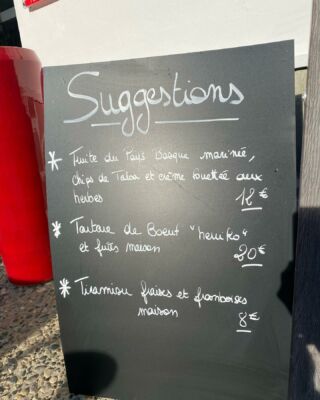 Suggestions
* Truite du Pays Basque marinée,
chips de Taloa et crème fouettée aux
herbes 12€
* Tartare de Boeuf "herriko"
et frites maison 20€
* Tiramisu fraises et framboises
maison 8€